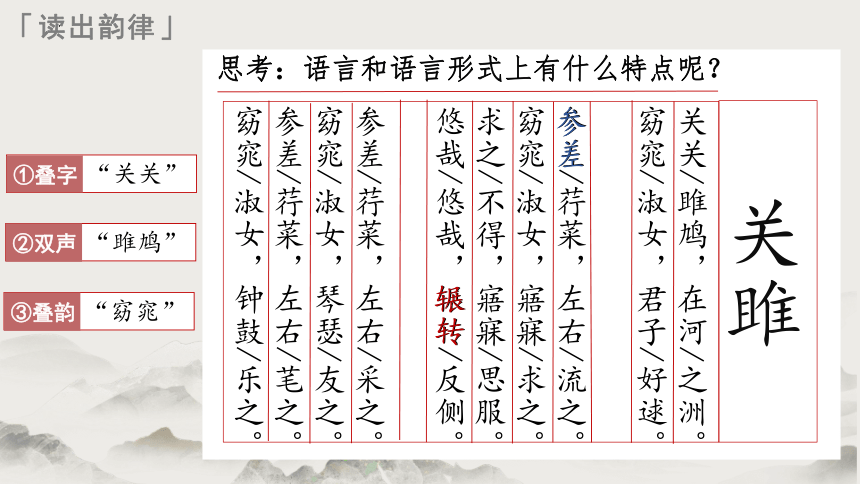 「读出韵律」
思考：语言和语言形式上有什么特点呢？
①叠字 “关关”
②双声 “雎鸠”
③叠韵 “窈窕”
关雎
关关/雎鸠，在河/之洲。
窈窕/淑女，君子/好逑。
参差/荇菜，左右/流之。
窈窕/淑女，寤寐/求之。
求之/不得，寤寐/思服。
悠哉/悠哉，辗转/反侧。
参差/荇菜，左右/采之。
窈窕/淑女，琴瑟/友之。
参差/荇菜，左右/芼之。
窈窕/淑女，钟鼓/乐之。